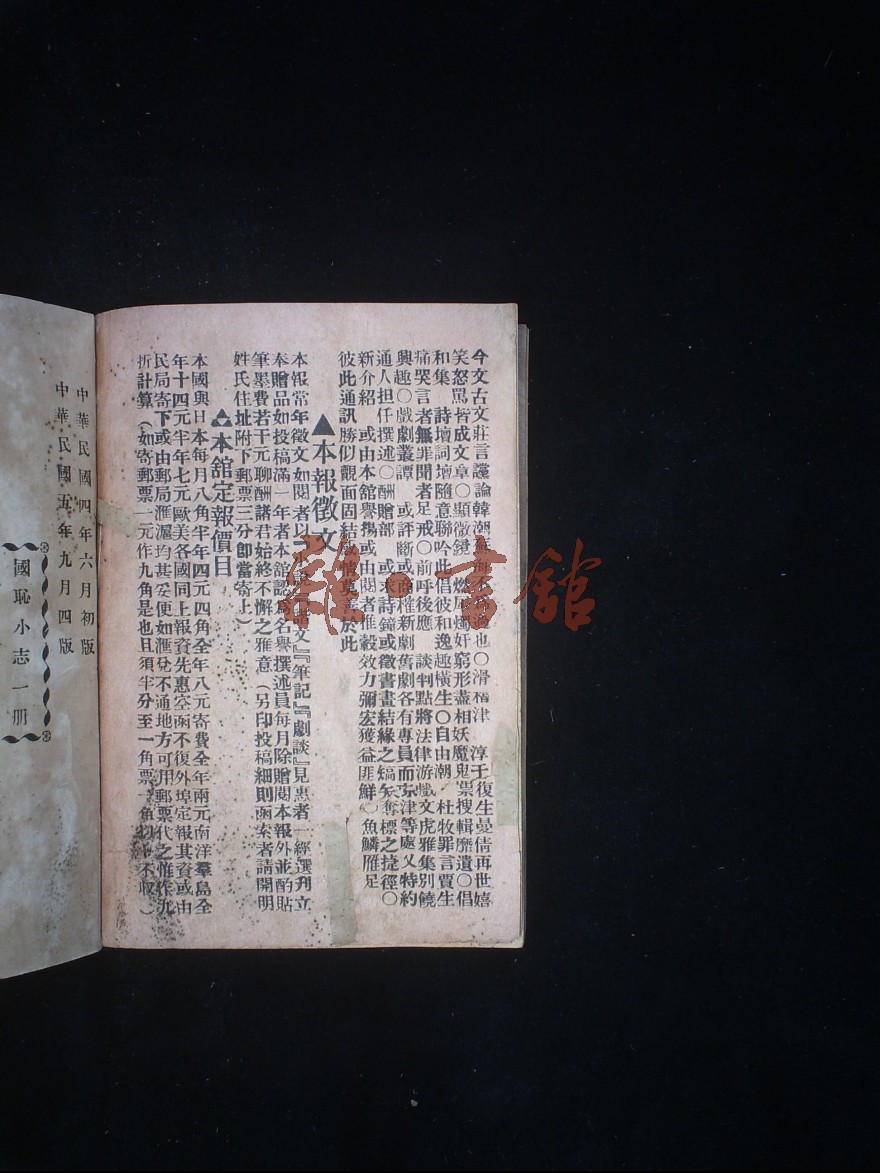 今文古文莊言讜論韓潮蘇海不啻過也○滑稽津　淳于復生曼倩再世嬉
笑怒罵皆成文章○顯微鏡　燃犀燭奸窮形盡相妖魔鬼祟搜輯靡遺○倡
和集　詩壇詞壇隨意聯吟此倡彼和逸趣橫生○自由潮　杜牧罪言賈生
痛哭言者無罪聞者足戒○前呼後應　談判點將法律游戲文虎雅集別饒
興趣○戲劇叢譚　或評斷或商榷新劇舊劇各有專員而京津等處又特約
通人担任撰述○酬贈部　或求詩鐘或徵書畫結緣之熇矢奪標之捷徑○
新介紹　或由本舘譽揚或由閱者推轂效力彌宏獲益匪鮮○魚鱗雁足
彼此通訊勝似觀面固結感情莫善於此
▲本報徵文
本報常年徵文如閱者以『小說』『諧文』『筆記』『劇談』見惠者一經選刋立
奉贈品如投稿滿一年者本舘認爲名譽撰述員每月除贈閱本報外並酌貼
筆墨費若干元聊酬諸君始終不懈之雅意（另印投稿細則函索者請開明
姓氏住址附下郵票三分卽當寄上）
本舘定報價目
本國與日本每月八角半年四元四角全年八元寄費全年兩元南洋羣島全
年十四元半年七元歐美各國同上報資先惠空函不復外埠定報其資或由
民局寄下或由郵局滙滬均甚妥便如滙兌不通地方可用郵票代之惟作九
折計算（如寄郵票一元作九角是也且須半分至一角票一角以上不收）
中華民國四年六月初版
中華民國五年九月四版
國恥小志一册
雜·書舘